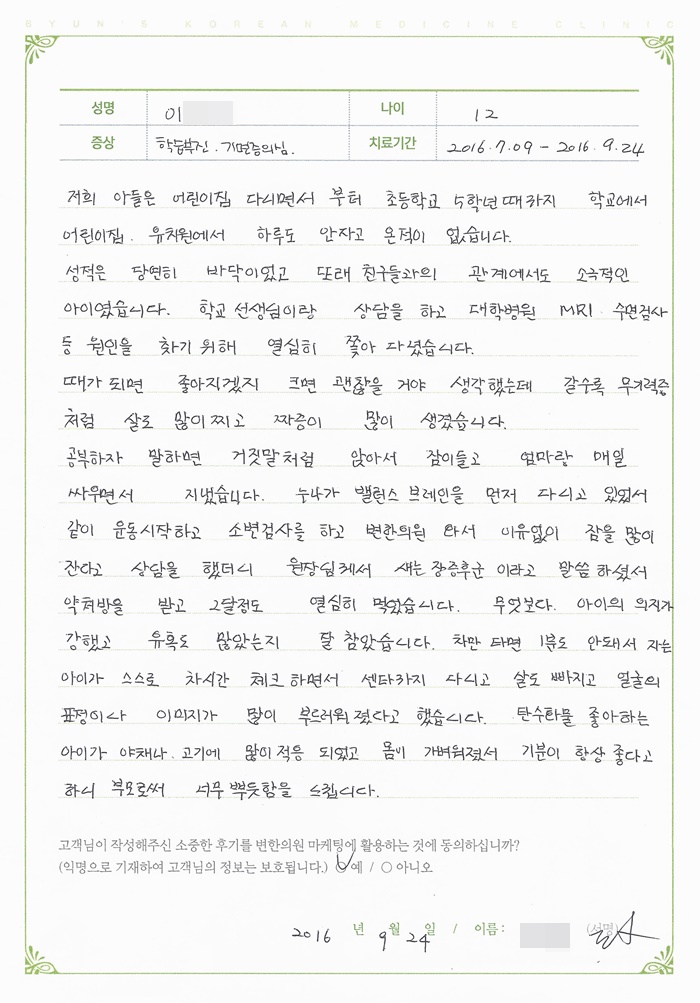 BYUN'S KOREAN MEDICINE CLINIC
성명 이 나이 12
증상 학습부진. 기면증의심. 치료기간 2016.7.09 - 2016.9.24
저희 아들은 어린이집 다니면서 부터 초등학교 5학년때까지 학교에서
어린이집. 유치원에서 하루도 안자고 온적이 없습니다.
성적은 당연히 바닥이었고 또래 친구들과의 관계에서도 소극적인
아이였습니다. 학교 선생님이랑 상담을 하고 대학병원 MRI. 수면검사
등 원인을 찾기 위해 열심히 쫓아 다녔습니다.
때가 되면 좋아지겠지 크면 괜찮을 거야 생각했는데 갈수록 무기력증
처럼 살도 많이 찌고 짜증이 많이 생겼습니다.
공부하자 말하면 거짓말처럼 앉아서 잠이들고 엄마랑 매일
싸우면서 지냈습니다. 누나가 밸런스 브레인을 먼저 다니고 있었서
같이 운동시작하고 소변검사를 하고 변한의원 와서 이유없이 잠을 많이
잔다고 상담을 했더니 원장님께서 새는장증후군 이라고 말씀 하셨서
약처방을 받고 2달정도 열심히 먹었습니다. 무엇보다. 아이의 의지가
강했고 유혹도 많았는지 잘 참았습니다. 차만 타면 1분도 안돼서 자는
아이가 스스로 차시간 체크 하면서 센타까지 다니고 살도 빠지고 얼굴의
표정이나 이미지가 많이 부드러워 졌다고 했습니다. 탄수화물 좋아하는
아이가 야채나. 고기에 많이 적응 되었고 몸이 가벼워졌서 기분이 항상 좋다고
하니 부모로써 너무 뿌듯함을 느낍니다.
고객님이 작성해주신 소중한 후기를 변한의원 마케팅에 활용하는 것에 동의하십니까?
(익명으로 기재하여 고객님의 정보는 보호됩니다.) ○ 예 / ○ 아니오
2016 년 9 월 24 일 / 이름 : (서명)